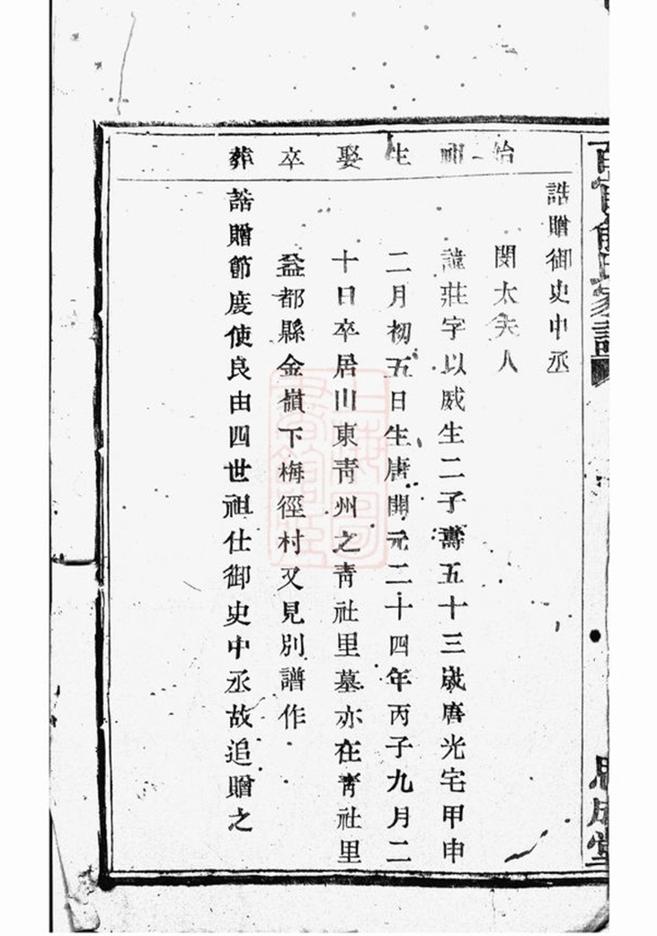 家譜
思成堂
始祖生娶卒葬
誥贈御史中丞
閔太夫人
諱莊字以威生二子壽五十三歲唐光宅甲申
二月初五日生唐開元二十四年丙子九月二
十日卒居山東靑州之靑社里墓亦在靑社里
益都縣金嶺下梅徑村又見別譜作
誥贈節度使良由四世祖仕御史中丞故追贈之